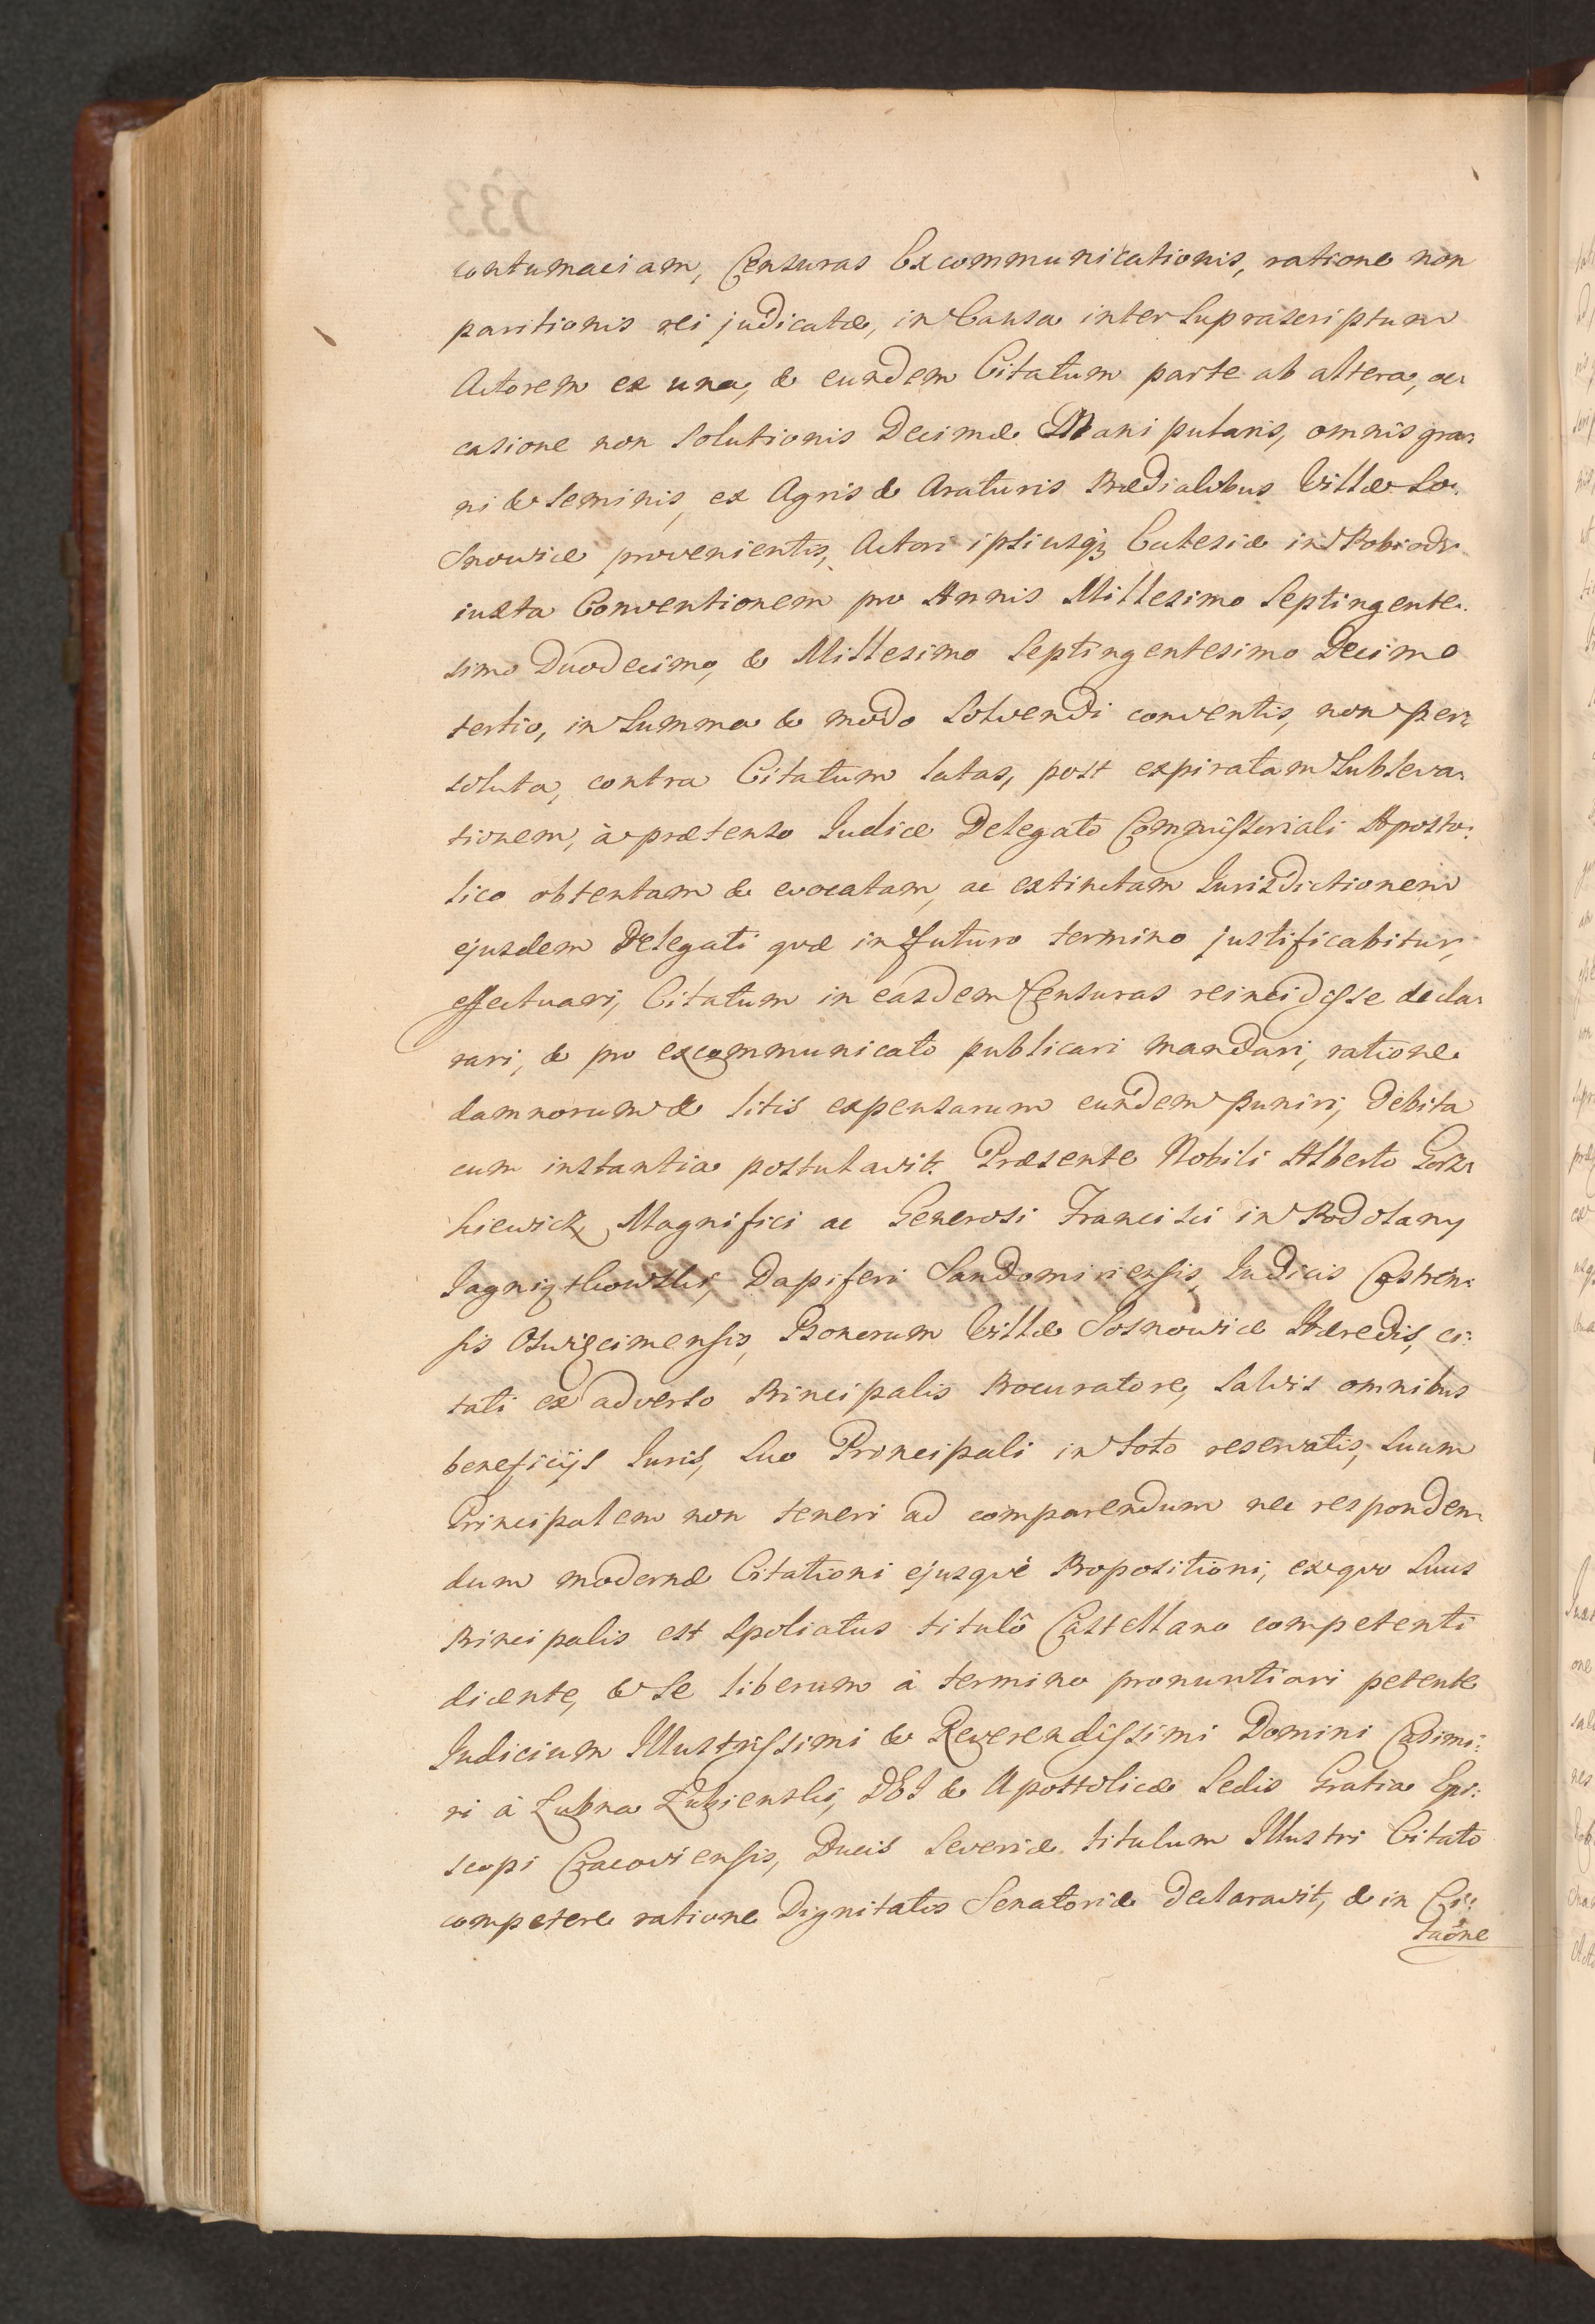 contumaciam, Censuras Excommunicationis, ratione non
paritionis rei judicatæ, in Causa inter Suprascriptum
Actorem ex una, & eundem Citatum parte ab altera, oc-
casione non Solutionis Decimæ Manipularis, omnis gra-
ni & Seminis, ex Agris & Araturis Prædialibus Villæ So-
snowice provenientis, Actori ipsiusq3 Ecclesiæ in
iuxta Conventionem pro Annis Millesimo Septingente-
simo Duodecimo, & Millesimo Septingentesimo Decimo
tertio, in Summa & modo Solvendi conventis, non per-
soluta, contra Citatum latas, post expiratam Subleva-
tionem, à prætenso Iudice Delegato Commissoriali Aposto-
lico obtentam & evocatam, ac extinctam Iurisdictionem
ejusdem Delegati quæ in futuro termino justificabitur,
effectuari, Citatum in easdem Censuras reincidisse decla-
rari, & pro excommunicato publicari mandari, ratione
damnorum & litis expensarum eundem puniri, debita
cum instantia postulavit. Præsente Nobili Alberto Gorz-
kiewicz, Magnifici ac Generosi Francisci in Podolany
Iagniątkowski, Dapiferi Sandomiriensis, Iudicis Castren-
sis Osvięcimensis, Bonorum Villæ Sosnowice Hæredis, ci-
tati ex adverso Principalis Procuratore, Salvis omnibus
beneficijs Iuris, Suo Principali in toto reservatis, Suum
Principalem non teneri ad comparendum nec responden-
dum modernæ Citationi ejusqué Propositioni, ex quo Suus
Principalis est Spoliatus titulô Castellano competenti
dicente, & Se liberum à termino pronuntiari petente
Iudicium Illustrissimi & Reverendissimi Domini Casimi-
ri à Łubna Łubienski, DEI & Apostolicæ Sedis Gratia Epi-
scopi Cracoviensis, Ducis Severiæ titulum Illustri Citato
competere ratione Dignitatis Senatoriæ declaravit, & in Ci-
taõne